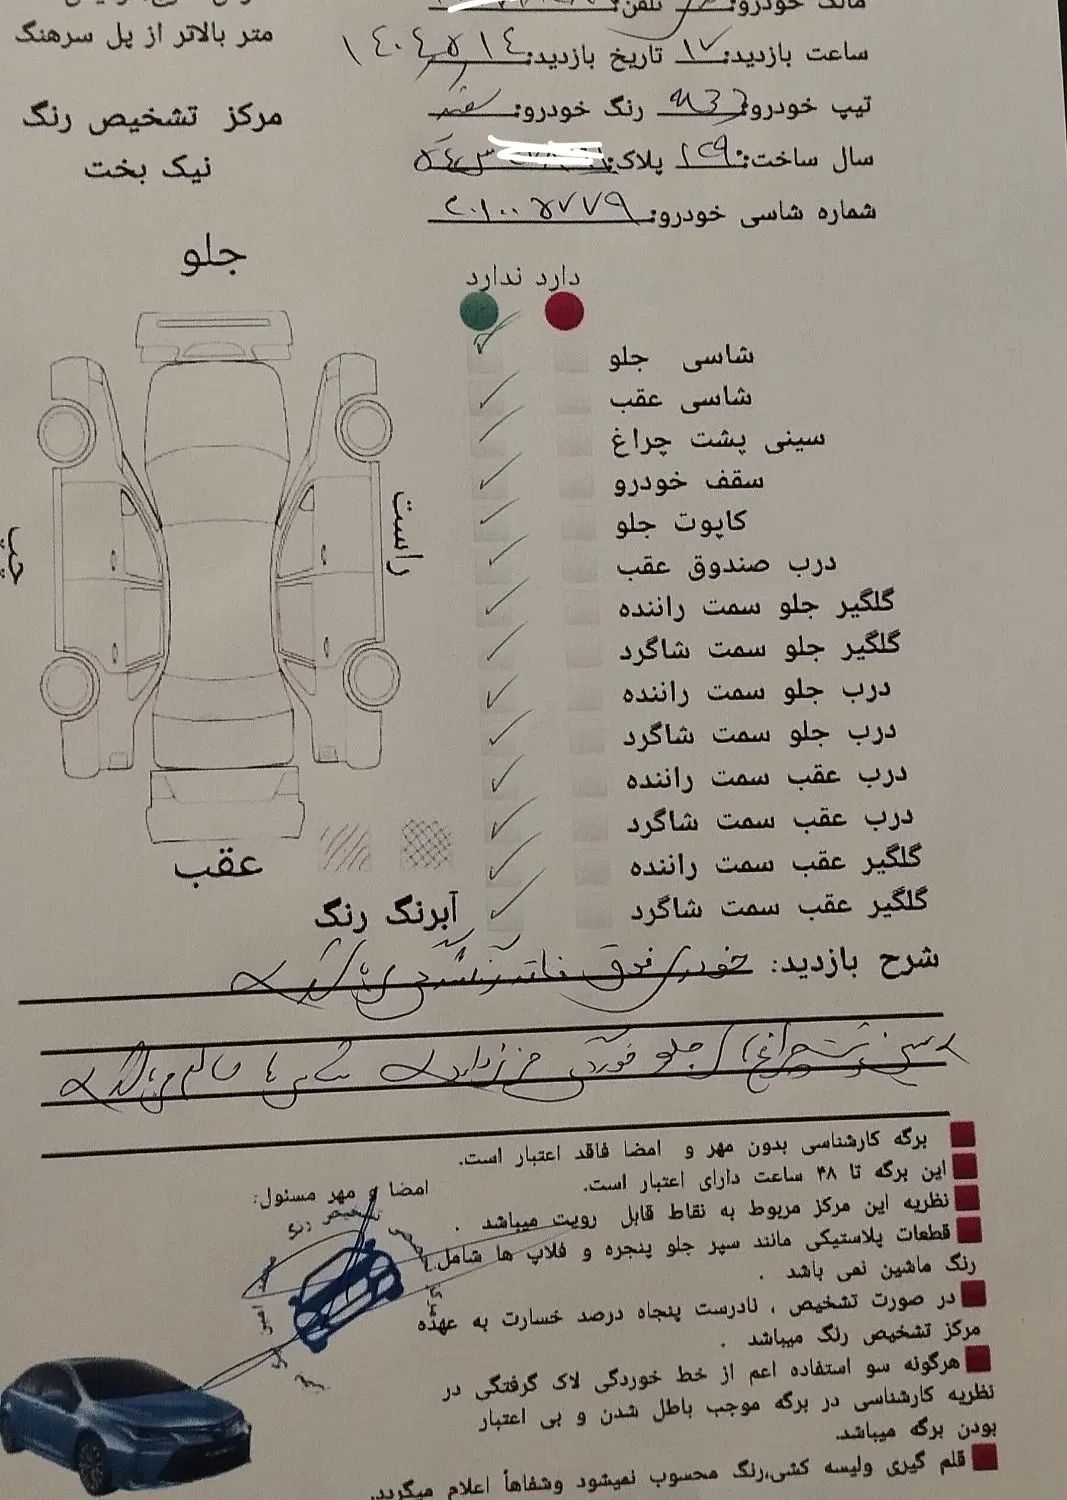 مالک خودرو: تلفن:
متر بالاتر از پل سرهنگ
ساعت بازدید: ۱۷ تاریخ بازدید: ۱۴۰۴/۵/۱۴
مرکز تشخیص رنگ
نیک بخت
تیپ خودرو: رنگ خودرو: سفید
سال ساخت: ۱۳۹۰ پلاک:
شماره شاسی خودرو: ۲۰۱۰۰۵۷۷۹
جلو
راست
چپ
عقب
آبرنگ رنگ
دارد ندارد
شاسی جلو ✓
شاسی عقب ✓
سینی پشت چراغ ✓
سقف خودرو ✓
کاپوت جلو ✓
درب صندوق عقب ✓
گلگیر جلو سمت راننده ✓
گلگیر جلو سمت شاگرد ✓
درب جلو سمت راننده ✓
درب جلو سمت شاگرد ✓
درب عقب سمت راننده ✓
درب عقب سمت شاگرد ✓
گلگیر عقب سمت راننده ✓
گلگیر عقب سمت شاگرد ✓
شرح بازدید: خودرو فوق فاقد رنگ شدگی می باشد
سینی پشت چراغ جلو خوردگی جزئی دارد شاسی ها سالم می باشد
برگه کارشناسی بدون مهر و امضا فاقد اعتبار است.
این برگه تا ۴۸ ساعت دارای اعتبار است.
نظریه این مرکز مربوط به نقاط قابل رویت میباشد .
قطعات پلاستیکی مانند سپر جلو پنجره و فلاپ ها شامل
رنگ ماشین نمی باشد .
در صورت تشخیص ، نادرست پنجاه درصد خسارت به عهده
مرکز تشخیص رنگ میباشد .
هرگونه سو استفاده اعم از خط خوردگی لاک گرفتگی در
نظریه کارشناسی در برگه موجب باطل شدن و بی اعتبار
بودن برگه میباشد.
قلم گیری ولیسه کشی،رنگ محسوب نمیشود وشفاهاً اعلام میگردد.
امضا و مهر مسئول:
تشخیص رنگ